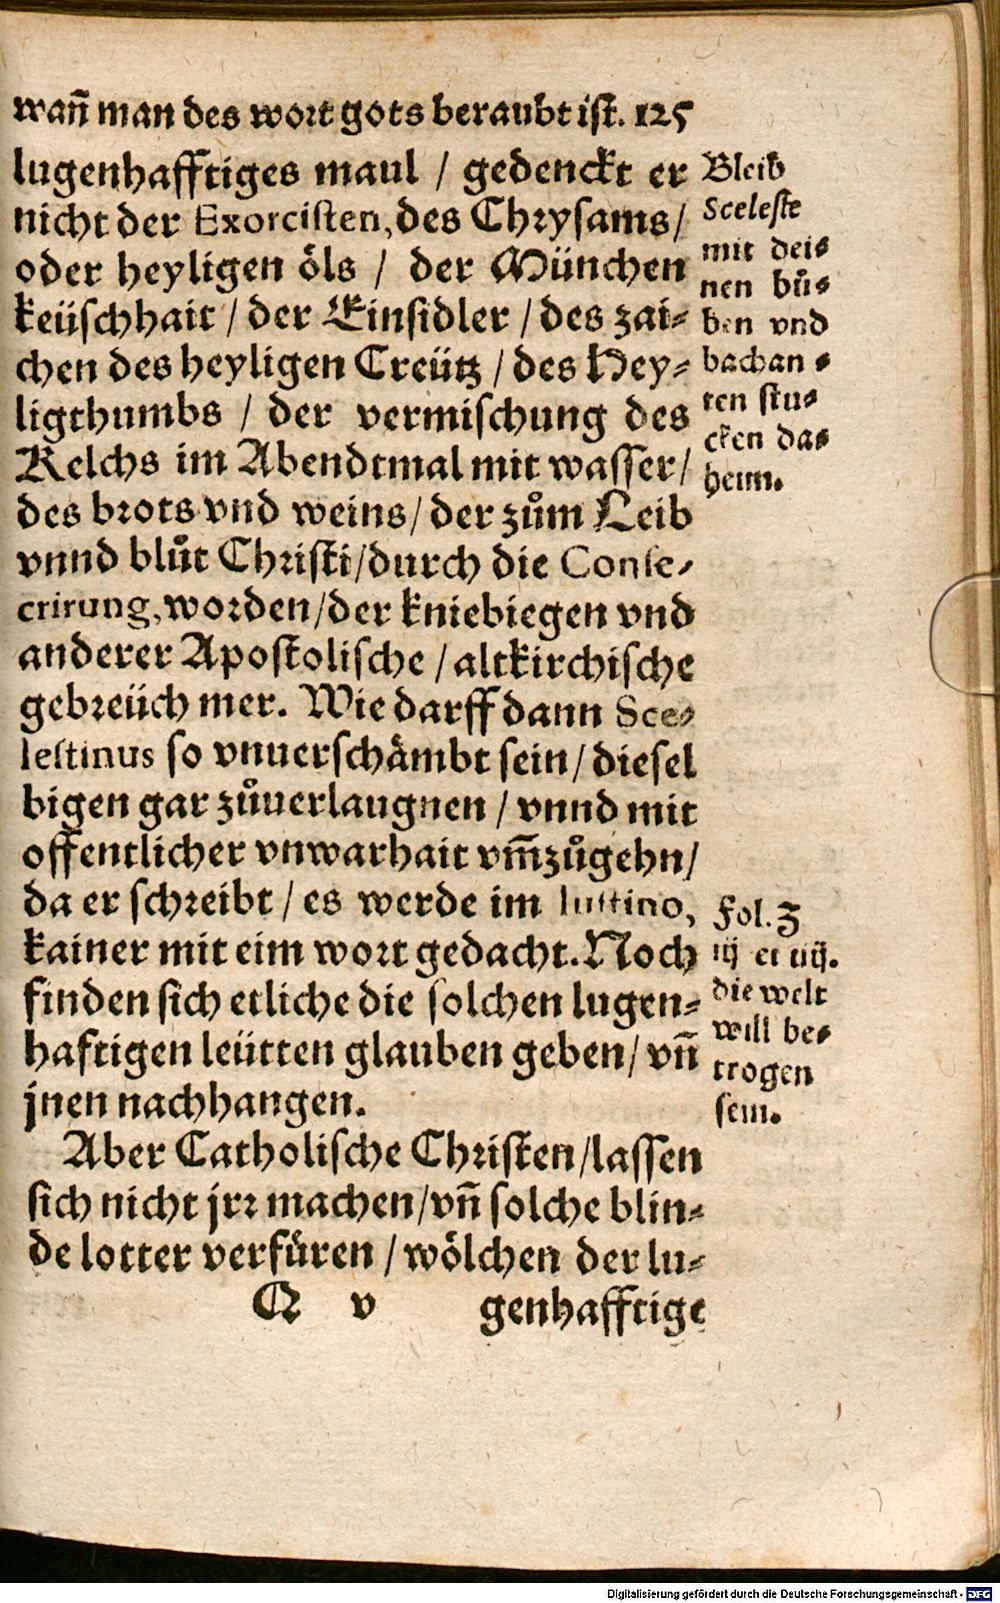 wañ man des wort gots beraubt ist. 125
lugenhafftiges maul / gedenckt er
nicht der Exorcisten, des Chrysams /
oder heyligen öls / der München
keüschhait / der Einsidler / des zai⸗
chen des heyligen Creütz / des Hey⸗
ligthumbs / der vermischung des
Kelchs im Abendtmal mit wasser /
des brots vnd weins / der zům Leib
vnnd blůt Christi / durch die Conse⸗
crirung, worden / der kniebiegen vnd
anderer Apostolische / altkirchische
gebreüch mer. Wie darff dann Sce⸗
lestinus so vnuerschämbt sein / diesel
bigen gar zůuerlaugnen / vnnd mit
offentlicher vnwarhait vm̃zůgehn /
da er schreibt / es werde im Iustino,
kainer mit eim wort gedacht. Noch
finden sich etliche die solchen lugen⸗
haftigen leütten glauben geben / vñ
jnen nachhangen.
Aber Catholische Christen / lassen
sich nicht jrr machen / vñ solche blin⸗
de lotter verfüren / wölchen der lu⸗
Q v genhafftige
Bleib
Sceleste
mit dei⸗
nen bů⸗
ben vnd
bachan⸗
ten stu⸗
cken da⸗
heim.
Fol. Z
iij et iiij.
die welt
will be⸗
trogen
sein.
Digitalisierung gefördert durch die Deutsche Forschungsgemeinschaft - DFG